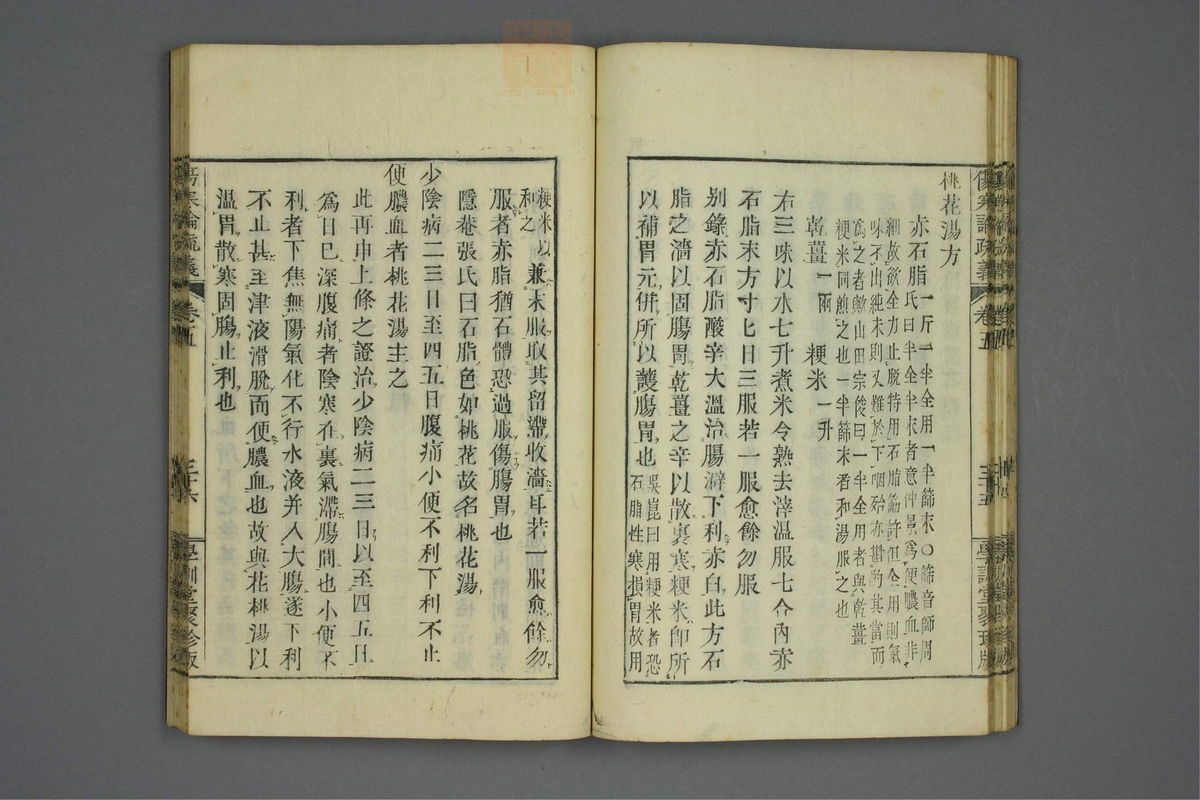 傷寒論疏義 卷五 三十五 學訓堂聚珍版
桃花湯方
赤石脂一斤一半全用一半篩末○篩音師周
氏曰半全半末者意仲景爲便膿血非
細故欲全力止脫特用石脂觔許但全用則氣
味不出純末則又難於下咽殆亦斟酌其當而
爲之者歟山田宗俊曰一半全用者與乾薑
粳米同煎之也一半篩末者和湯服之也
乾薑一兩 粳米一升
右三味以水七升煮米令熟去滓溫服七合內赤
石脂末方寸匕日三服若一服愈餘勿服
別錄赤石脂酸辛大溫治腸澼下利赤白此方石
脂之濇以固腸胃乾薑之辛以散裏寒粳米卽所
以補胃元併所以護腸胃也吳崑曰用粳米者恐
石脂性寒損胃故用
粳米以
和之兼末服取其留滯收濇耳若一服愈餘勿
服者亦脂猶石體恐過服傷腸胃也
隱菴張氏曰石脂色如桃花故名桃花湯
少陰病二三日至四五日腹痛小便不利下利不止
便膿血者桃花湯主之
此再申上條之證治少陰病二三日以至四五日
爲日已深腹痛者陰寒在裏氣滯腸間也小便不
利者下焦無陽氣化不行水液并入大腸遂下利
不止甚至津液滑脫而便膿血也故與花桃湯以
溫胃散寒固腸止利也
傷寒論疏義 卷五 三十六 學訓堂聚珍版